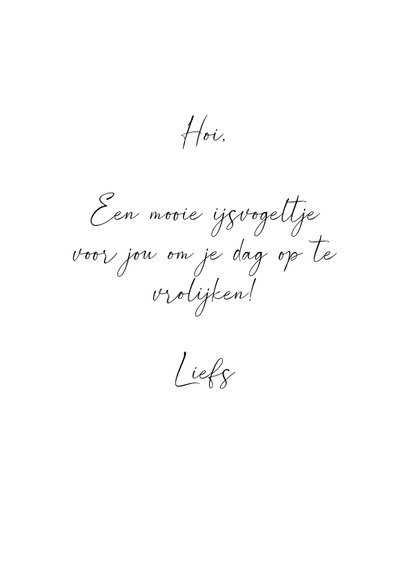 Hoi,
Een mooie ijsvogeltje
voor jou om je dag op te
vrolijken!
Liefs